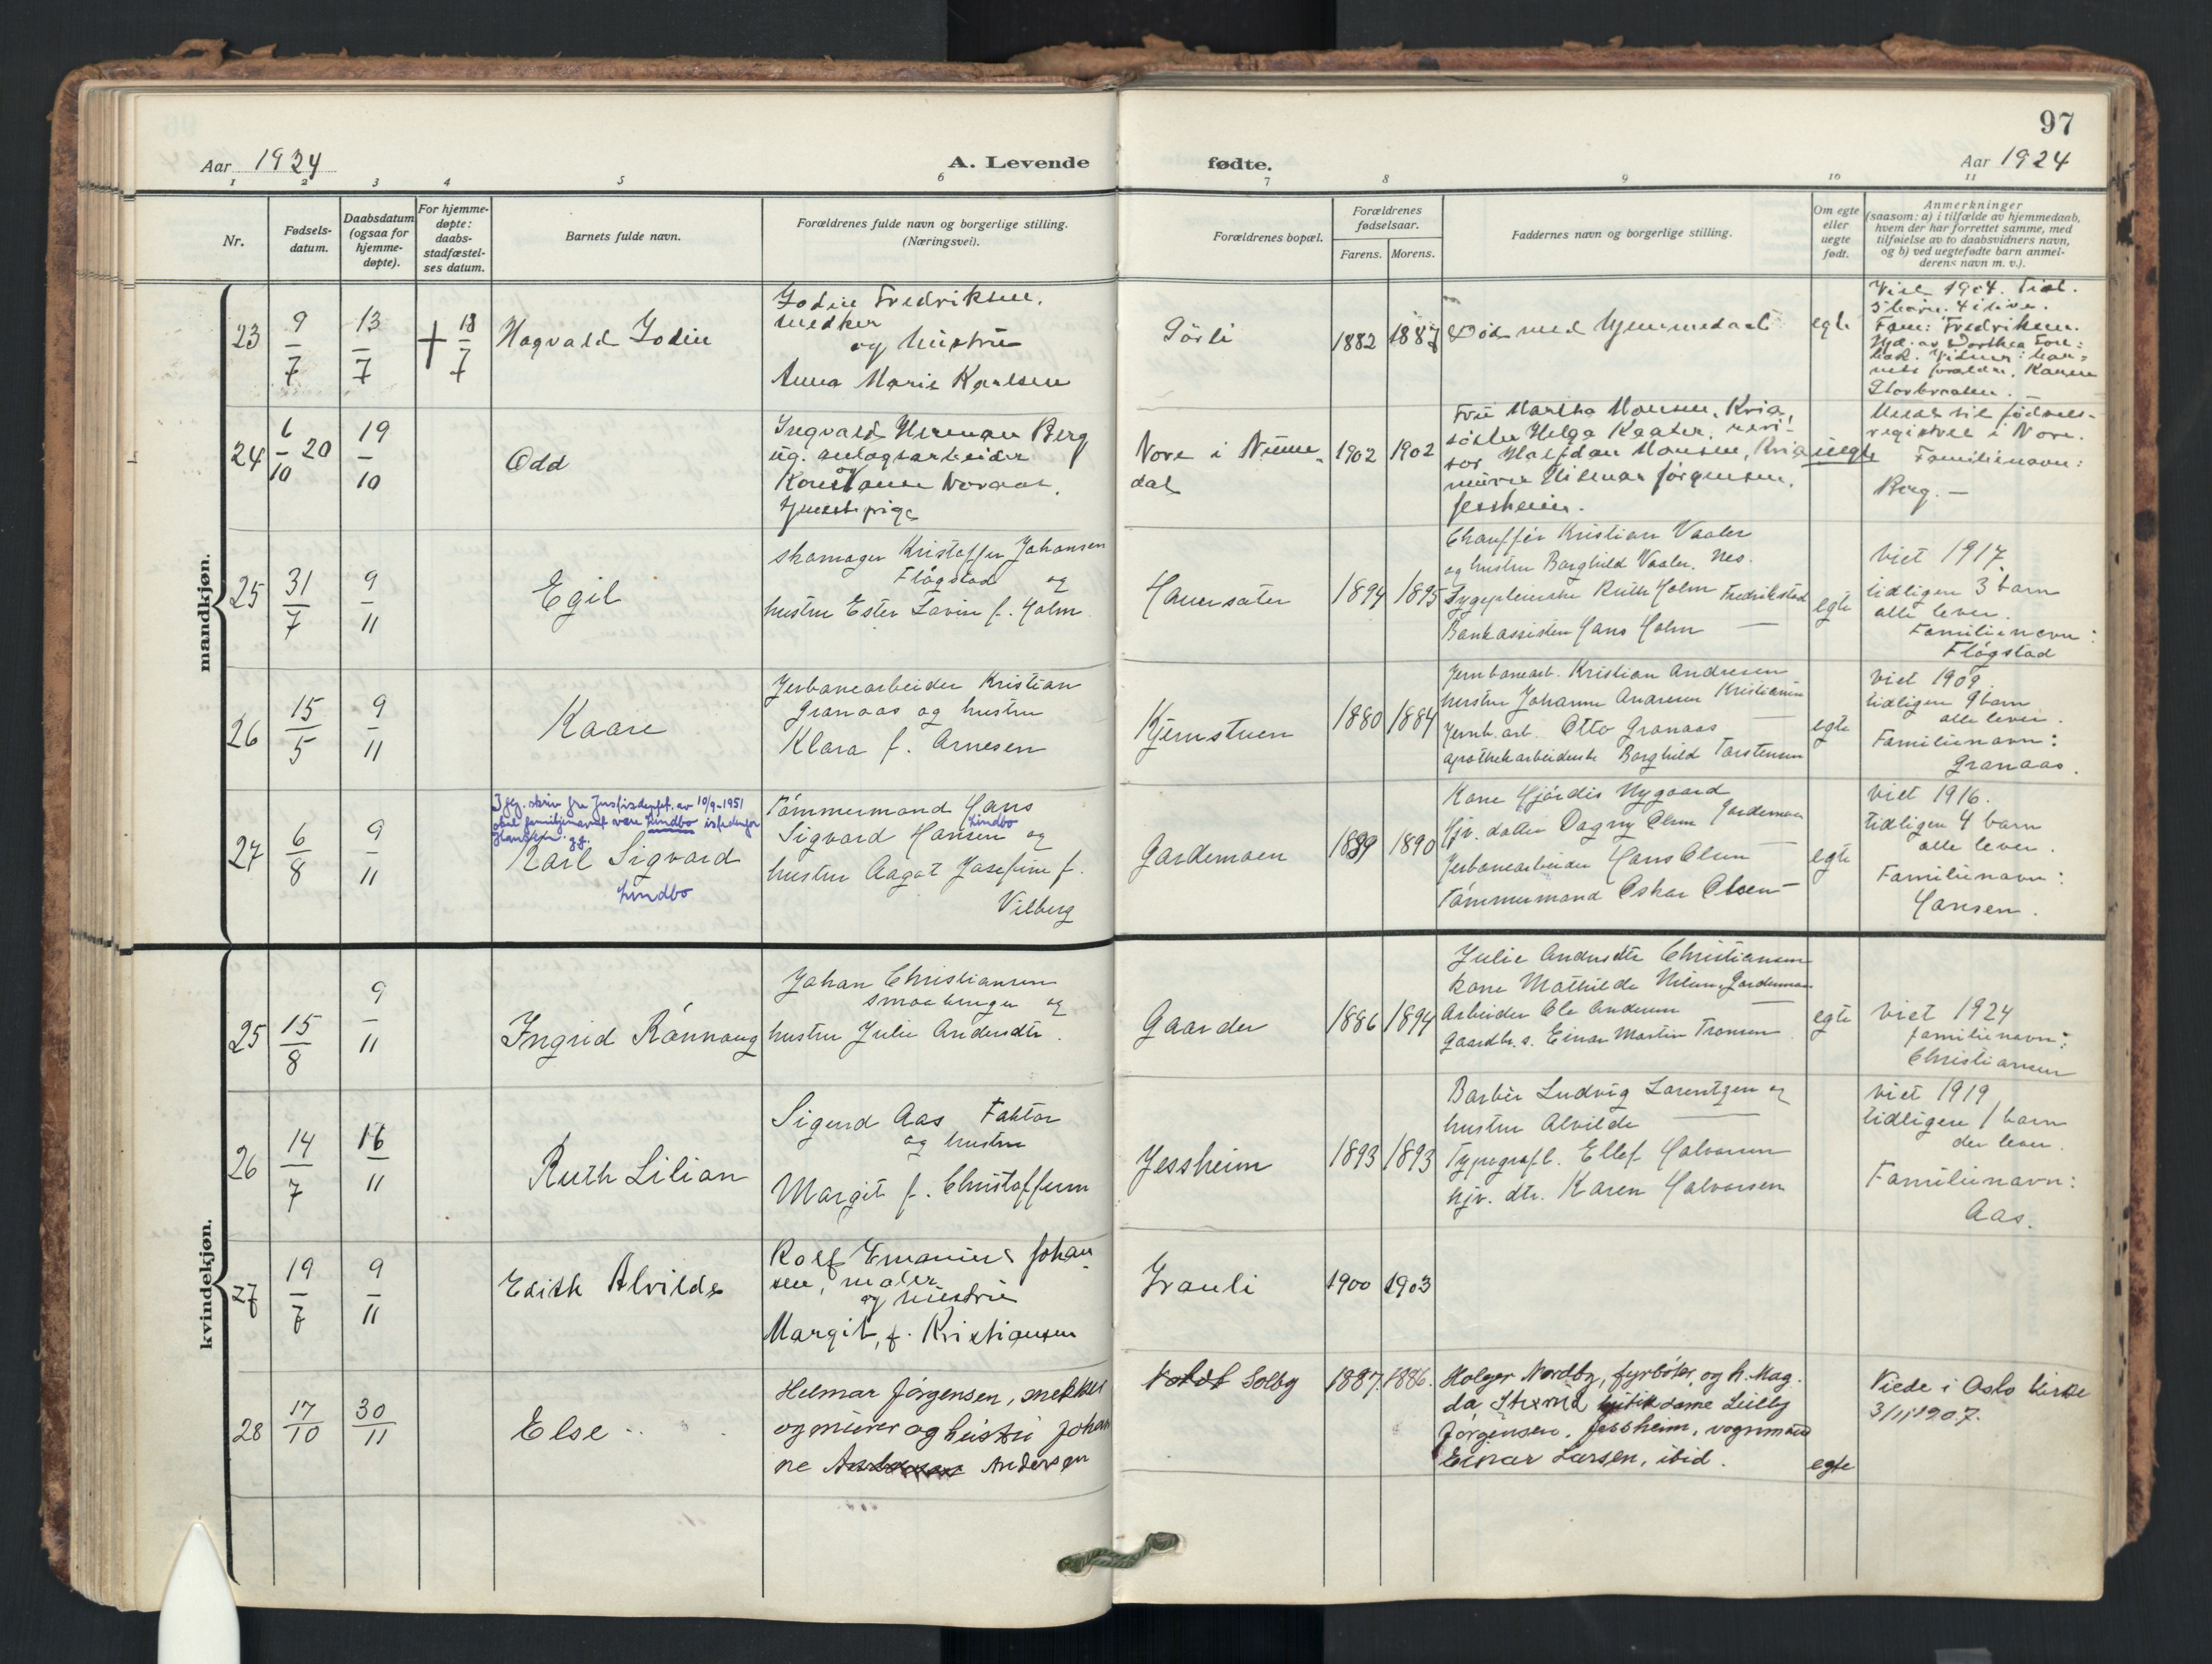 97
Aar 1924
A. Levende
fødte.
Aar 1924
1 2 3 4 5 6 7 8 9 10 11
Nr.
Fødsels-
datum.
Daabsdatum
(ogsaa for
hjemme-
døpte).
For hjemme-
døpte:
daabs-
stadfæstel-
ses datum.
Barnets fulde navn.
Forældrenes fulde navn og borgerlige stilling.
(Næringsvei).
Forældrenes bopæl.
Forældrenes
fødselsaar.
Farens. Morens.
Faddernes navn og borgerlige stilling.
Om egte
eller
uegte
født.
Anmerkninger
(saasom: a) i tilfælde av hjemmedaab,
hvem der har forrettet samme, med
tilføielse av to daabsvidners navn,
og b) ved uegtefødte barn anmel-
derens navn m. v.).
mandkjøn.
23
9/7
13/7
+ 18/7
Hagvald Jodin
Jodin Fredriksen,
snedker
og hustru
Anna Marie Karlsen
Sørli
1882 1887
Død med hjemmedaab
egte
Viet 1904. Tidl.
5 barn. 4 i live.
Fam: Fredriksen.
Hjd. av Dorthea
nets forældre, Karen
24
6/10 20
19/10
Odd
Ingvald Herman Berg
ug. anlægsarbeider
og
Konstanse Noraas,
tjenestepige
Nore i Nume-
dal
1902 1902
Fru Martha Monsen, Kria,
søster Helga Kaater, revi-
sor Halfdan Monsen, Kria
murer Hilmar Jörgensen,
Jessheim.
uegte
Meldt til fødsels-
registret i Nore.
Familienavn:
Berg. —
25
31/7
9/11
Egil
skomager Kristoffer Johansen
Flögstad og
hustru Ester Lovise f. Holm
Hauersæter
1894 1895
Chauffør Kristian Vaaler
og hustru Borghild Vaaler, Nes.
Sygepleierske Ruth Holm Fredrikstad
Bankassisten Hans Holm —
egte
Viet 1917
tidligere 3 barn
alle lever.
Familienavn:
Flögstad
26
15/5
9/11
Kaare
Jerbanearbeider Kristian
Granaas og hustru
Klara f. Arnesen
Kjernstuen
1880 1884
Jernbanearb. Kristian Andresen
hustru Johanne Andresen Kristiania
Jernb. arb. Otto Granaas —
apothekarbeiderske Borghild Torstensen
egte
Viet 1909.
tidligere 9 barn
alle lever.
Familienavn:
Granaas.
27
6/8
9/11
I flg. skriv fra Justisdepart. av 10/9-1951
skal familienavnet være Lindbo istedenfor
Karl Sigvard
Lindbo
Tömmermand Hans
Lindbo
Sigvard Hansen og
hustru Aagot Josefine f.
Vilberg
Gardemoen
1889 1890
Kone Hjördis Nygaard
hjv. datter Dagny Olsen Gardemoen
Jerbanearbeider Hans Olsen —
Tömmermand Oskar Olsen —
egte
Viet 1916.
tidligere 4 barn
alle lever.
Familienavn:
Hansen.
kvindekjøn.
25
15/8
9/11
Ingrid Rönnaug
Johan Christiansen
smaabruger og
hustru Julie Andersdtr.
Gaarder
1886 1894
Julie Andersdtr Christiansen
kone Mathilde Nilsen, Gardermoen
Arbeider Ole Andersen —
Gaardbr. s. Einar Martin Tronsen
egte
Viet 1924
familienavn:
Christiansen
26
14/7
16/11
Ruth Lilian
Sigurd Aas Faktor
og hustru
Margit f. Christoffersen
Jessheim
1893 1893
Barber Ludvig Lorentzen og
hustru Alvilde —
Typograf l. Ellef Halvorsen
hjv. dtr. Karen Halvorsen
Viet 1919
tidligere 1 barn
der lever.
Familienavn:
Aas.
27
19/7
9/11
Edith Alvilde
Rolf Emanuel Johan-
sen, maler
og hustru
Margit, f. Kristiansen
1900 1903
28
17/10
30/11
Else
Helmar Jörgensen, snekker
og murer og hustru Johan
ne Andersen
Solby
1887. 1886.
Holger Nordby, fyrböter, og h. Mag-
da butikdame Lilly
Jörgensen, Jessheim, vognmand
Einar Larsen, ibid.
egte
Viede i Oslo kirke
3/11 1907.